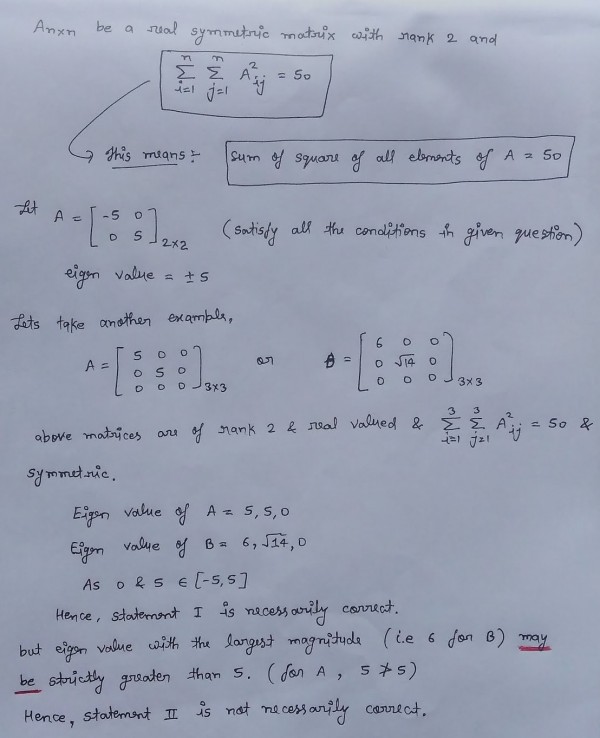 Anxn be a real symmetric matrix with rank 2 and
n n
∑ ∑ A²ij = 50
i=1 j=1
This means :- sum of square of all elements of A = 50
Let A = [-5 0
0 5]2×2 (satisfy all the conditions in given question)
eigen value = ± 5
Lets take another example,
A = [5 0 0
0 5 0
0 0 0]3×3 or B = [6 0 0
0 √14 0
0 0 0]3×3
above matrices are of rank 2 & real valued & 3∑i=1 3∑j=1 A²ij = 50 &
symmetric.
Eigen value of A = 5, 5, 0
Eigen value of B = 6, √14, 0
As 0 & 5 ∈ [-5, 5]
Hence, statement I is necessarily correct.
but eigen value with the largest magnitude (i.e 6 for B) may
be strictly greater than 5. (for A, 5 ≯ 5)
Hence, statement II is not necessarily correct.